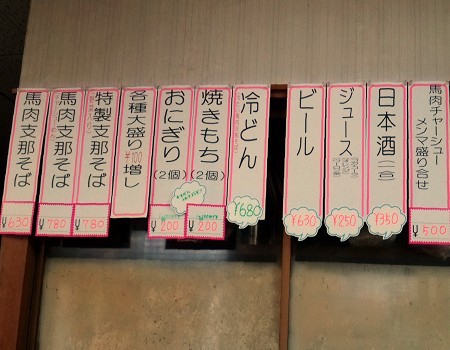 馬肉チャーシュー
メンマ盛り合せ
¥500
日本酒(一合)
¥350
ジュース
¥250
ビール
¥630
冷どん
¥680
焼きもち(2個)
¥200
おにぎり(2個)
¥200
各種大盛り¥100増し
特製支那そば
¥780
馬肉支那そば
¥780
馬肉支那そば
¥630